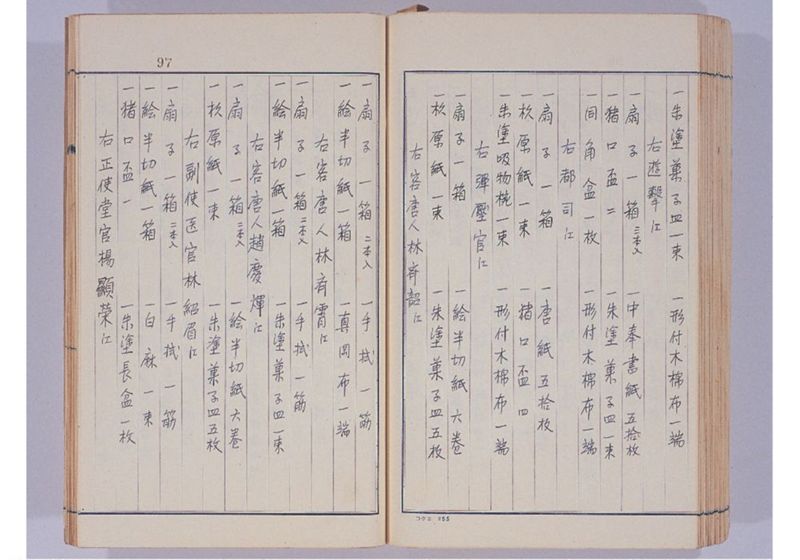 一朱塗菓子皿一束 一形付木棉布一端
右遊撃江
一扇子一箱三本入 一中奉書紙五拾枚
一猪口盃二 一朱塗菓子皿一束
一同角盆一枚 一形付木棉布一端
右都司江
一扇子一箱 一唐紙五拾枚
一杉原紙一束 一猪口盃四
一朱塗吸物椀一束 一形付木棉布一端
右彈壓官江
一扇子一箱 一絵半切紙六巻
一杉原紙一束 一朱塗菓子皿五枚
右客唐人林齊韶江
コクヨ 155
一扇子一箱二本入 一手拭一筋
一絵半切紙一箱 一真岡布一端
右客唐人林齊霄江
一扇子一箱二本入 一手拭一筋
一絵半切紙一箱 一朱塗菓子皿一束
右客唐人趙慶煇江
一扇子一箱二本入 一絵半切紙六巻
一杉原紙一束 一朱塗菓子皿五枚
右副使医官林紹眉江
一扇子一箱二本入 一手拭一筋
一絵半切紙一箱 一白麻一束
一猪口盃一 一朱塗長盆一枚
右正使堂官楊顯荣江
97